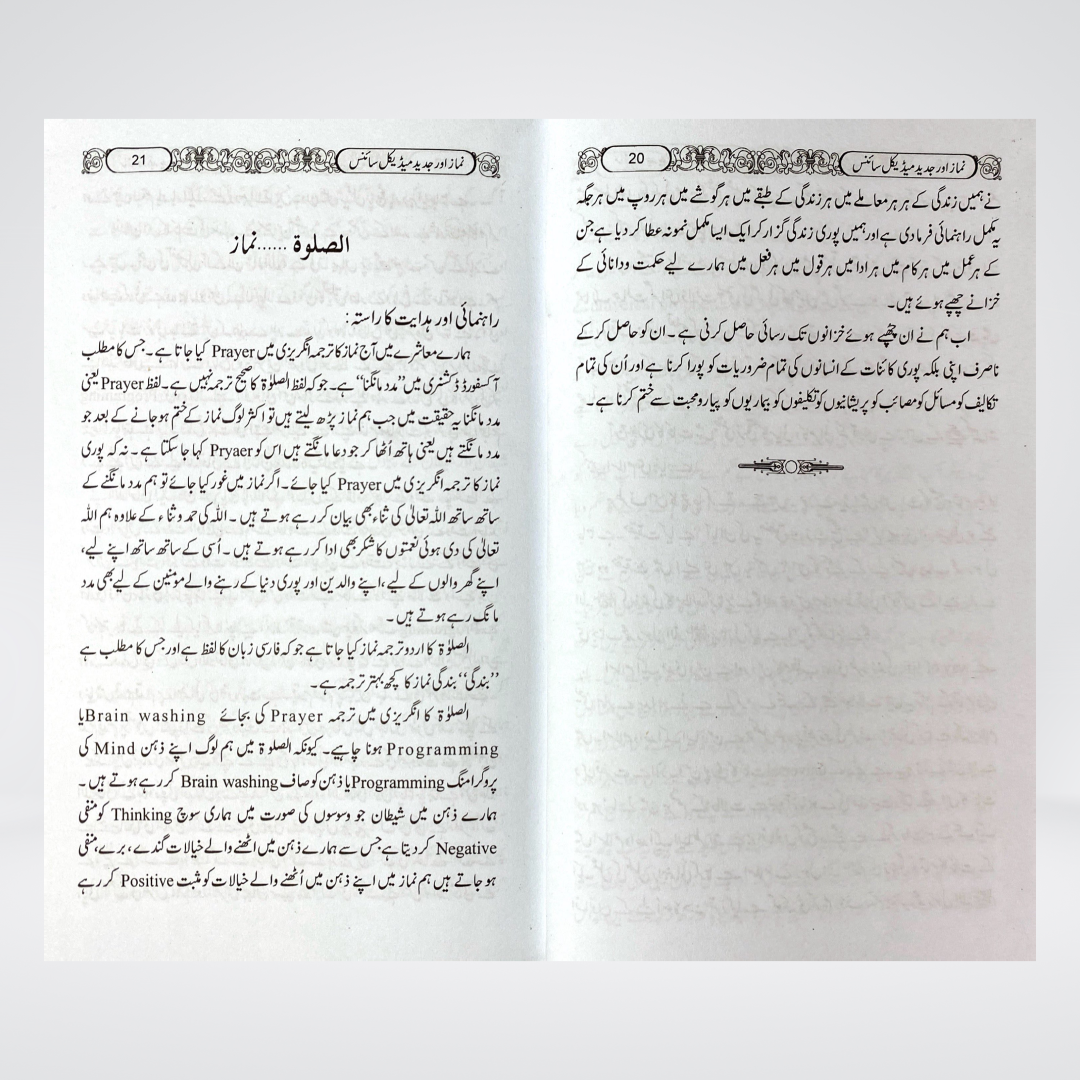 نماز اور جدید میڈیکل سائنس
20
نے ہمیں زندگی کے ہر ہر معاملے میں ہر زندگی کے طبقے میں ہر گوشے میں ہر روپ میں ہر جگہ
یہ مکمل راہنمائی فرما دی ہے اور ہمیں پوری زندگی گزار کر ایک ایسا مکمل نمونہ عطا کر دیا ہے جن
کے ہر عمل میں ہر کام میں ہر ادا میں ہر قول میں ہر فعل میں ہمارے لیے حکمت ودانائی کے
خزانے چھپے ہوئے ہیں۔
اب ہم نے ان چھپے ہوئے خزانوں تک رسائی حاصل کرنی ہے ۔ ان کو حاصل کر کے
ناصرف اپنی بلکہ پوری کائنات کے انسانوں کی تمام ضروریات کو پورا کرنا ہے اور اُن کی تمام
تکالیف کو مسائل کو مصائب کو پریشانیوں کو تکلیفوں کو بیماریوں کو پیار و محبت سے ختم کرنا ہے ۔
نماز اور جدید میڈیکل سائنس
21
الصلوة ...... نماز
راہنمائی اور ہدایت کا راستہ:
ہمارے معاشرے میں آج نماز کا ترجمہ انگریزی میں Prayer کیا جاتا ہے۔ جس کا مطلب
آکسفورڈ ڈکشنری میں ”مدد مانگنا“ ہے۔ جو کہ لفظ الصلوٰۃ کا صحیح ترجمہ نہیں ہے۔ لفظ Prayer یعنی
مدد مانگنا یہ حقیقت میں جب ہم نماز پڑھ لیتے ہیں تو اکثر لوگ نماز کے ختم ہو جانے کے بعد جو
مدد مانگتے ہیں یعنی ہاتھ اُٹھا کر جو دعا مانگتے ہیں اس کو Pryaer کہا جا سکتا ہے ۔ نہ کہ پوری
نماز کا ترجمہ انگریزی میں Prayer کیا جائے۔ اگر نماز میں غور کیا جائے تو ہم مدد مانگنے کے
ساتھ ساتھ اللہ تعالیٰ کی ثناء بھی بیان کر رہے ہوتے ہیں ۔ اللہ کی حمد و ثناء کے علاوہ ہم اللہ
تعالیٰ کی دی ہوئی نعمتوں کا شکر بھی ادا کر رہے ہوتے ہیں ۔ اُسی کے ساتھ ساتھ اپنے لیے،
اپنے گھر والوں کے لیے ،اپنے والدین اور پوری دنیا کے رہنے والے مؤمنین کے لیے بھی مدد
مانگ رہے ہوتے ہیں ۔
الصلوٰۃ کا اردو ترجمہ نماز کیا جاتا ہے جو کہ فارسی زبان کا لفظ ہے اور جس کا مطلب ہے
”بندگی“ بندگی نماز کا کچھ بہتر ترجمہ ہے۔
الصلوٰۃ کا انگریزی میں ترجمہ Prayer کی بجائے Brain washing یا
Programming ہونا چاہیے۔ کیونکہ الصلوٰۃ میں ہم لوگ اپنے ذہن Mind کی
پروگرامنگ Programming یا ذہن کو صاف Brain washing کر رہے ہوتے ہیں ۔
ہمارے ذہن میں شیطان جو وسوسوں کی صورت میں ہماری سوچ Thinking کو منفی
Negative کر دیتا ہے جس سے ہمارے ذہن میں اٹھنے والے خیالات گندے ، برے ،منفی
ہو جاتے ہیں ہم نماز میں اپنے ذہن میں اُٹھنے والے خیالات کو مثبت Positive کر رہے